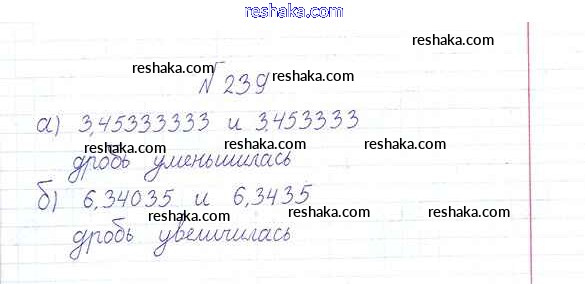 reshaka.com
reshaka.com
reshaka.com
№ 239 reshaka.com
а) 3,45333333 и 3,453333
reshaka.com reshaka.com reshaka.com
дробь уменьшилась
б) 6,34035 и 6,3435
reshaka.com reshaka.com reshaka.com
дробь увеличилась